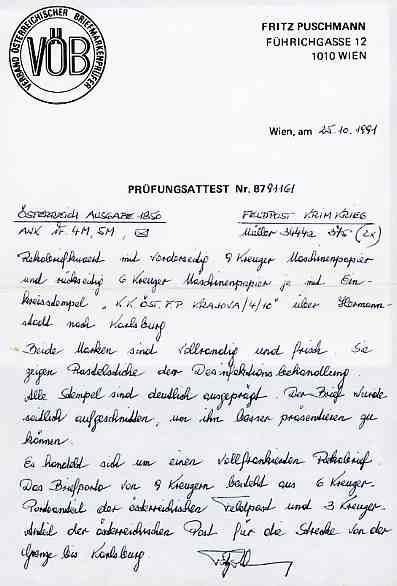 VERBAND ÖSTERREICHISCHER BRIEFMARKENPRÜFER
VÖB
FRITZ PUSCHMANN
FÜHRICHGASSE 12
1010 WIEN
Wien, am 25.10.1991
PRÜFUNGSATTEST Nr. 8791161
ÖSTERREICH AUSGABE 1850 FELDPOST KRIMKRIEG
ANK Nr 4M, 5M, Müller 3444a 375 (2x)
Rekobriefkuvert mit vorderseitig 9 Kreuzer Maschinenpapier
und rückseitig 6 Kreuzer Maschinenpapier je mit Ein-
kreisstempel "K.K. ÖST. F.P. KRAJOVA/4/10" über Hermann-
stadt nach Karlsburg
Beide Marken sind vollrandig und frisch. Sie
zeigen Rastelstiche der Desinfektionsbehandlung.
Alle Stempel sind deutlich ausgeprägt. Der Brief wurde
seitlich aufgeschnitten, um ihn besser präsentieren zu
können.
Es handelt sich um einen vollfrankierten Rekobrief.
Das Briefporto von 9 Kreuzern besteht aus 6 Kreuzer-
Portoanteil der österreichischen Feldpost und 3 Kreuzer-
Anteil der österreichischen Post für die Strecke von der
Grenze bis Karlsburg.